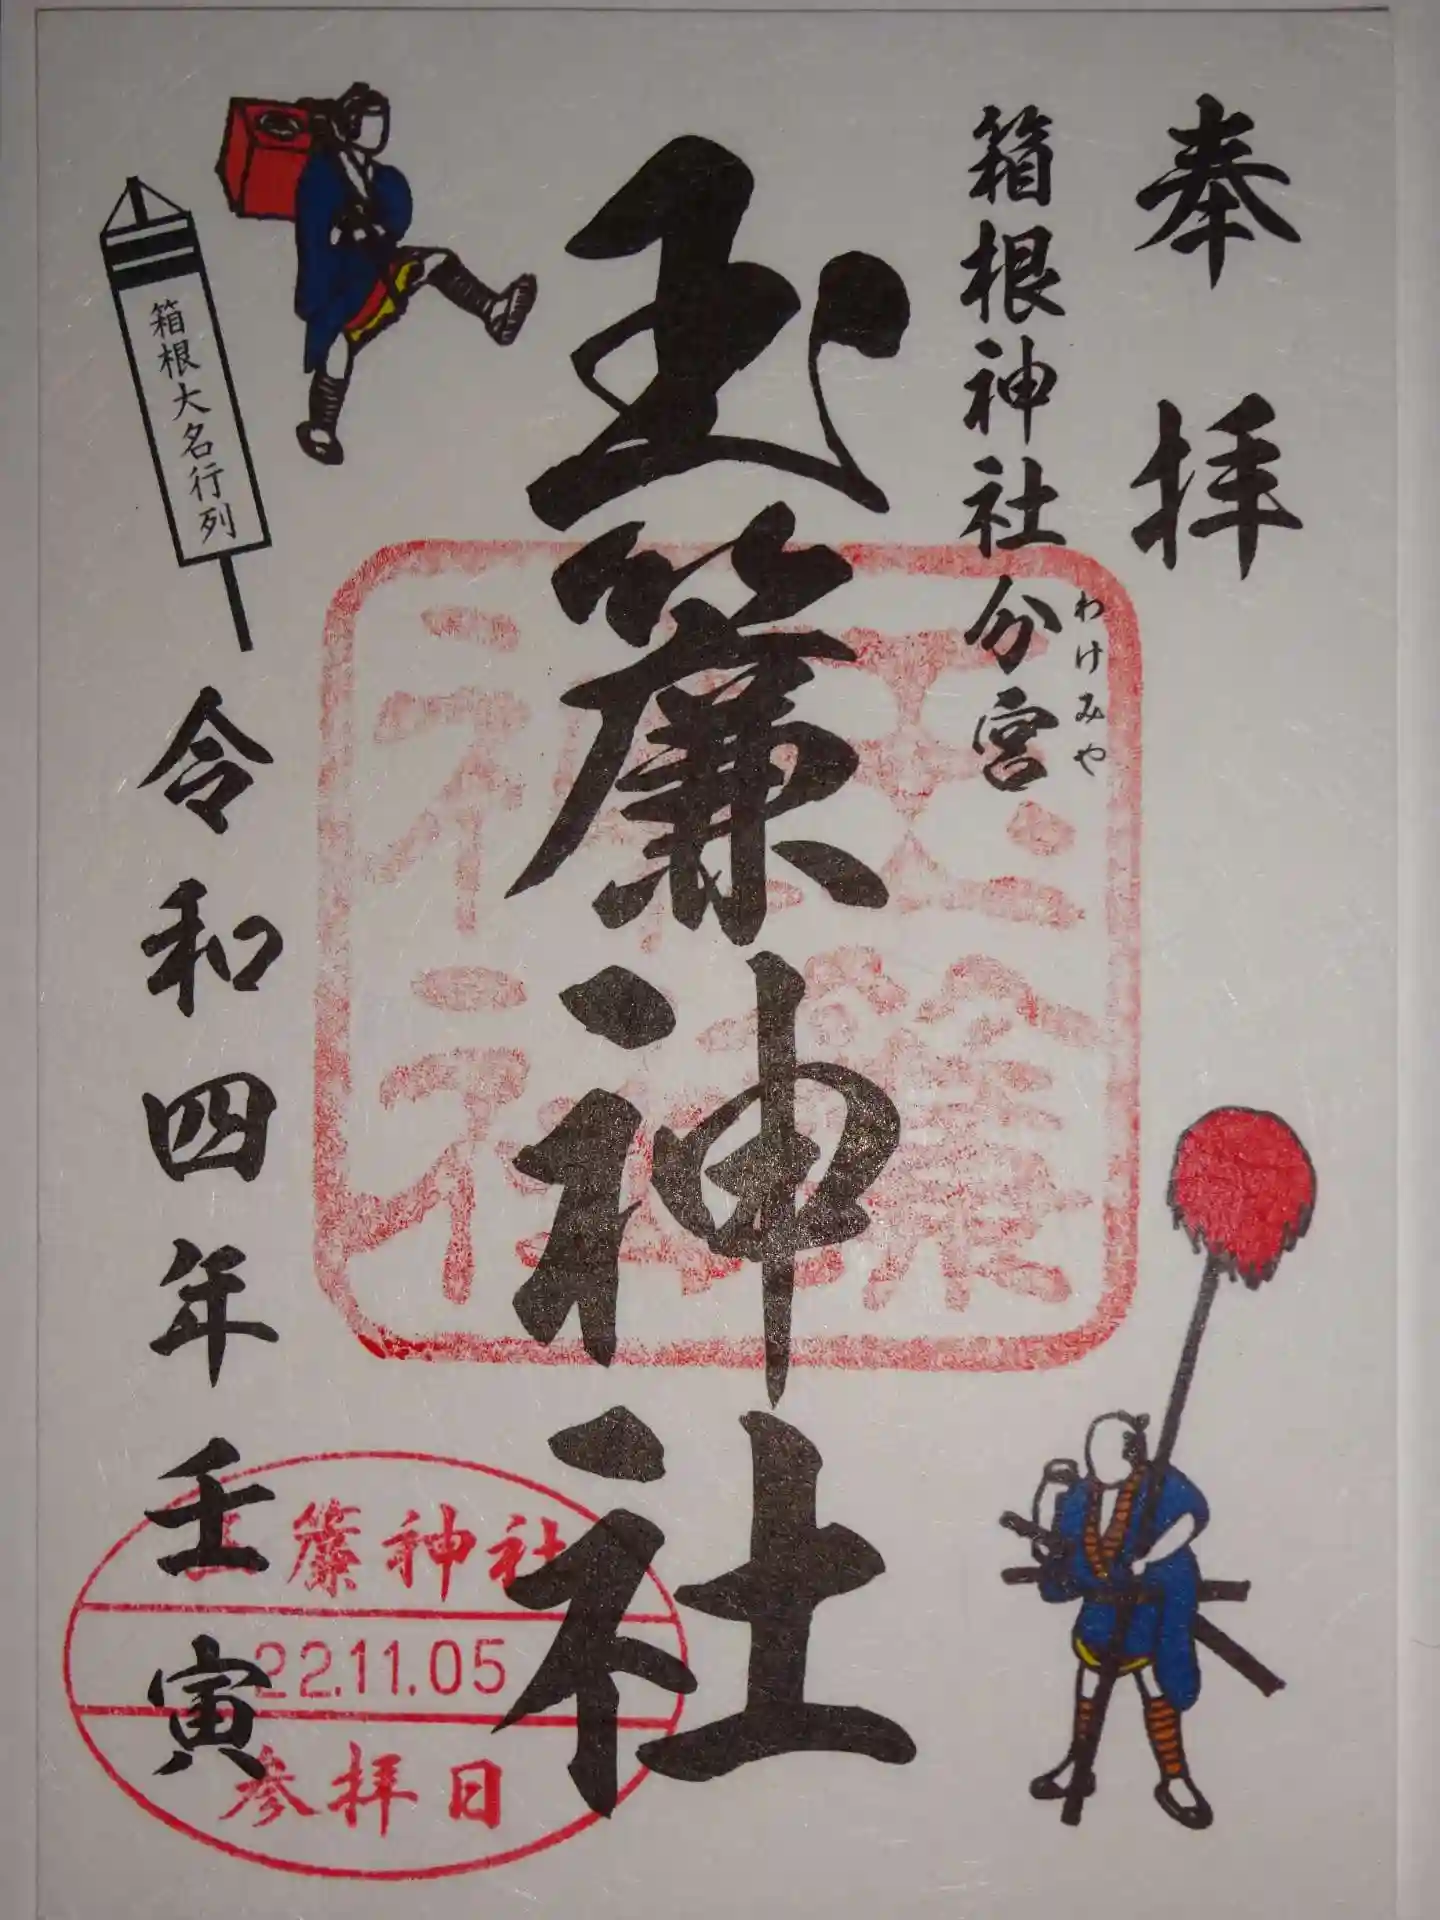 奉拝
箱根神社分宮
わけみや
玉簾神社
玉簾
神社
箱根大名行列
令和四年壬寅
簾神社
22.11.05
参拝日